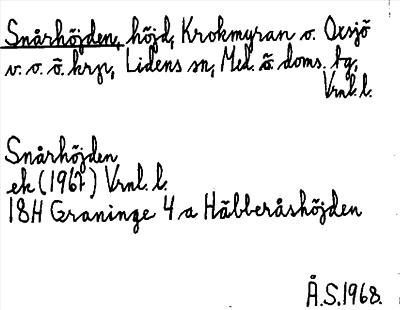 Snårhöjden, höjd, Krokmyran o. Oxsjö
v. o. ö. krpr, Lidens sn, Med. ö doms. tg,
Vrnl. l.
Snårhöjden
ek (1967) Vrnl. l.
18H Graninge 4 a Häbberåshöjden
Å.S. 1968.